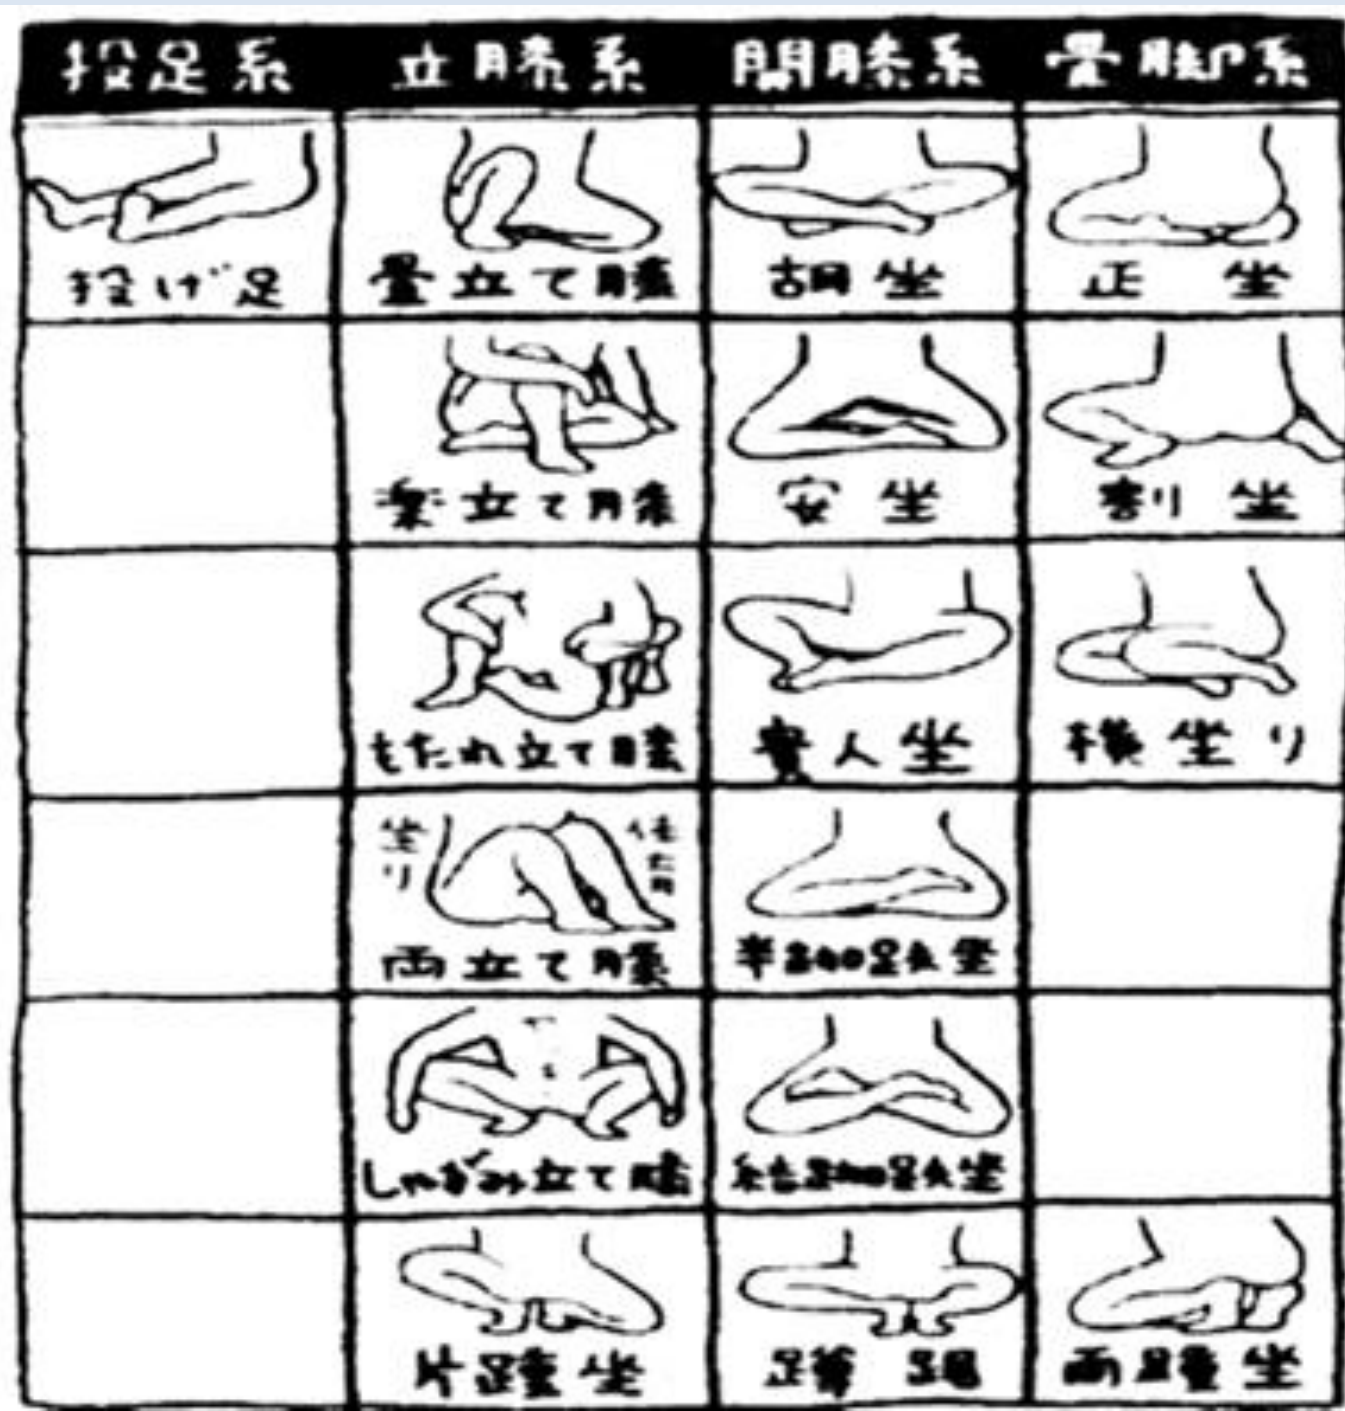 投足系 立膝系 開膝系 畳脚系
投げ足 畳立て膝 胡坐 正坐
楽立て膝 安坐 割坐
もたれ立て膝 貴人坐 横坐り
坐り
両立て膝 半跏趺坐
しゃがみ立て膝 結跏趺坐
片踵坐 蹲踞 両踵坐